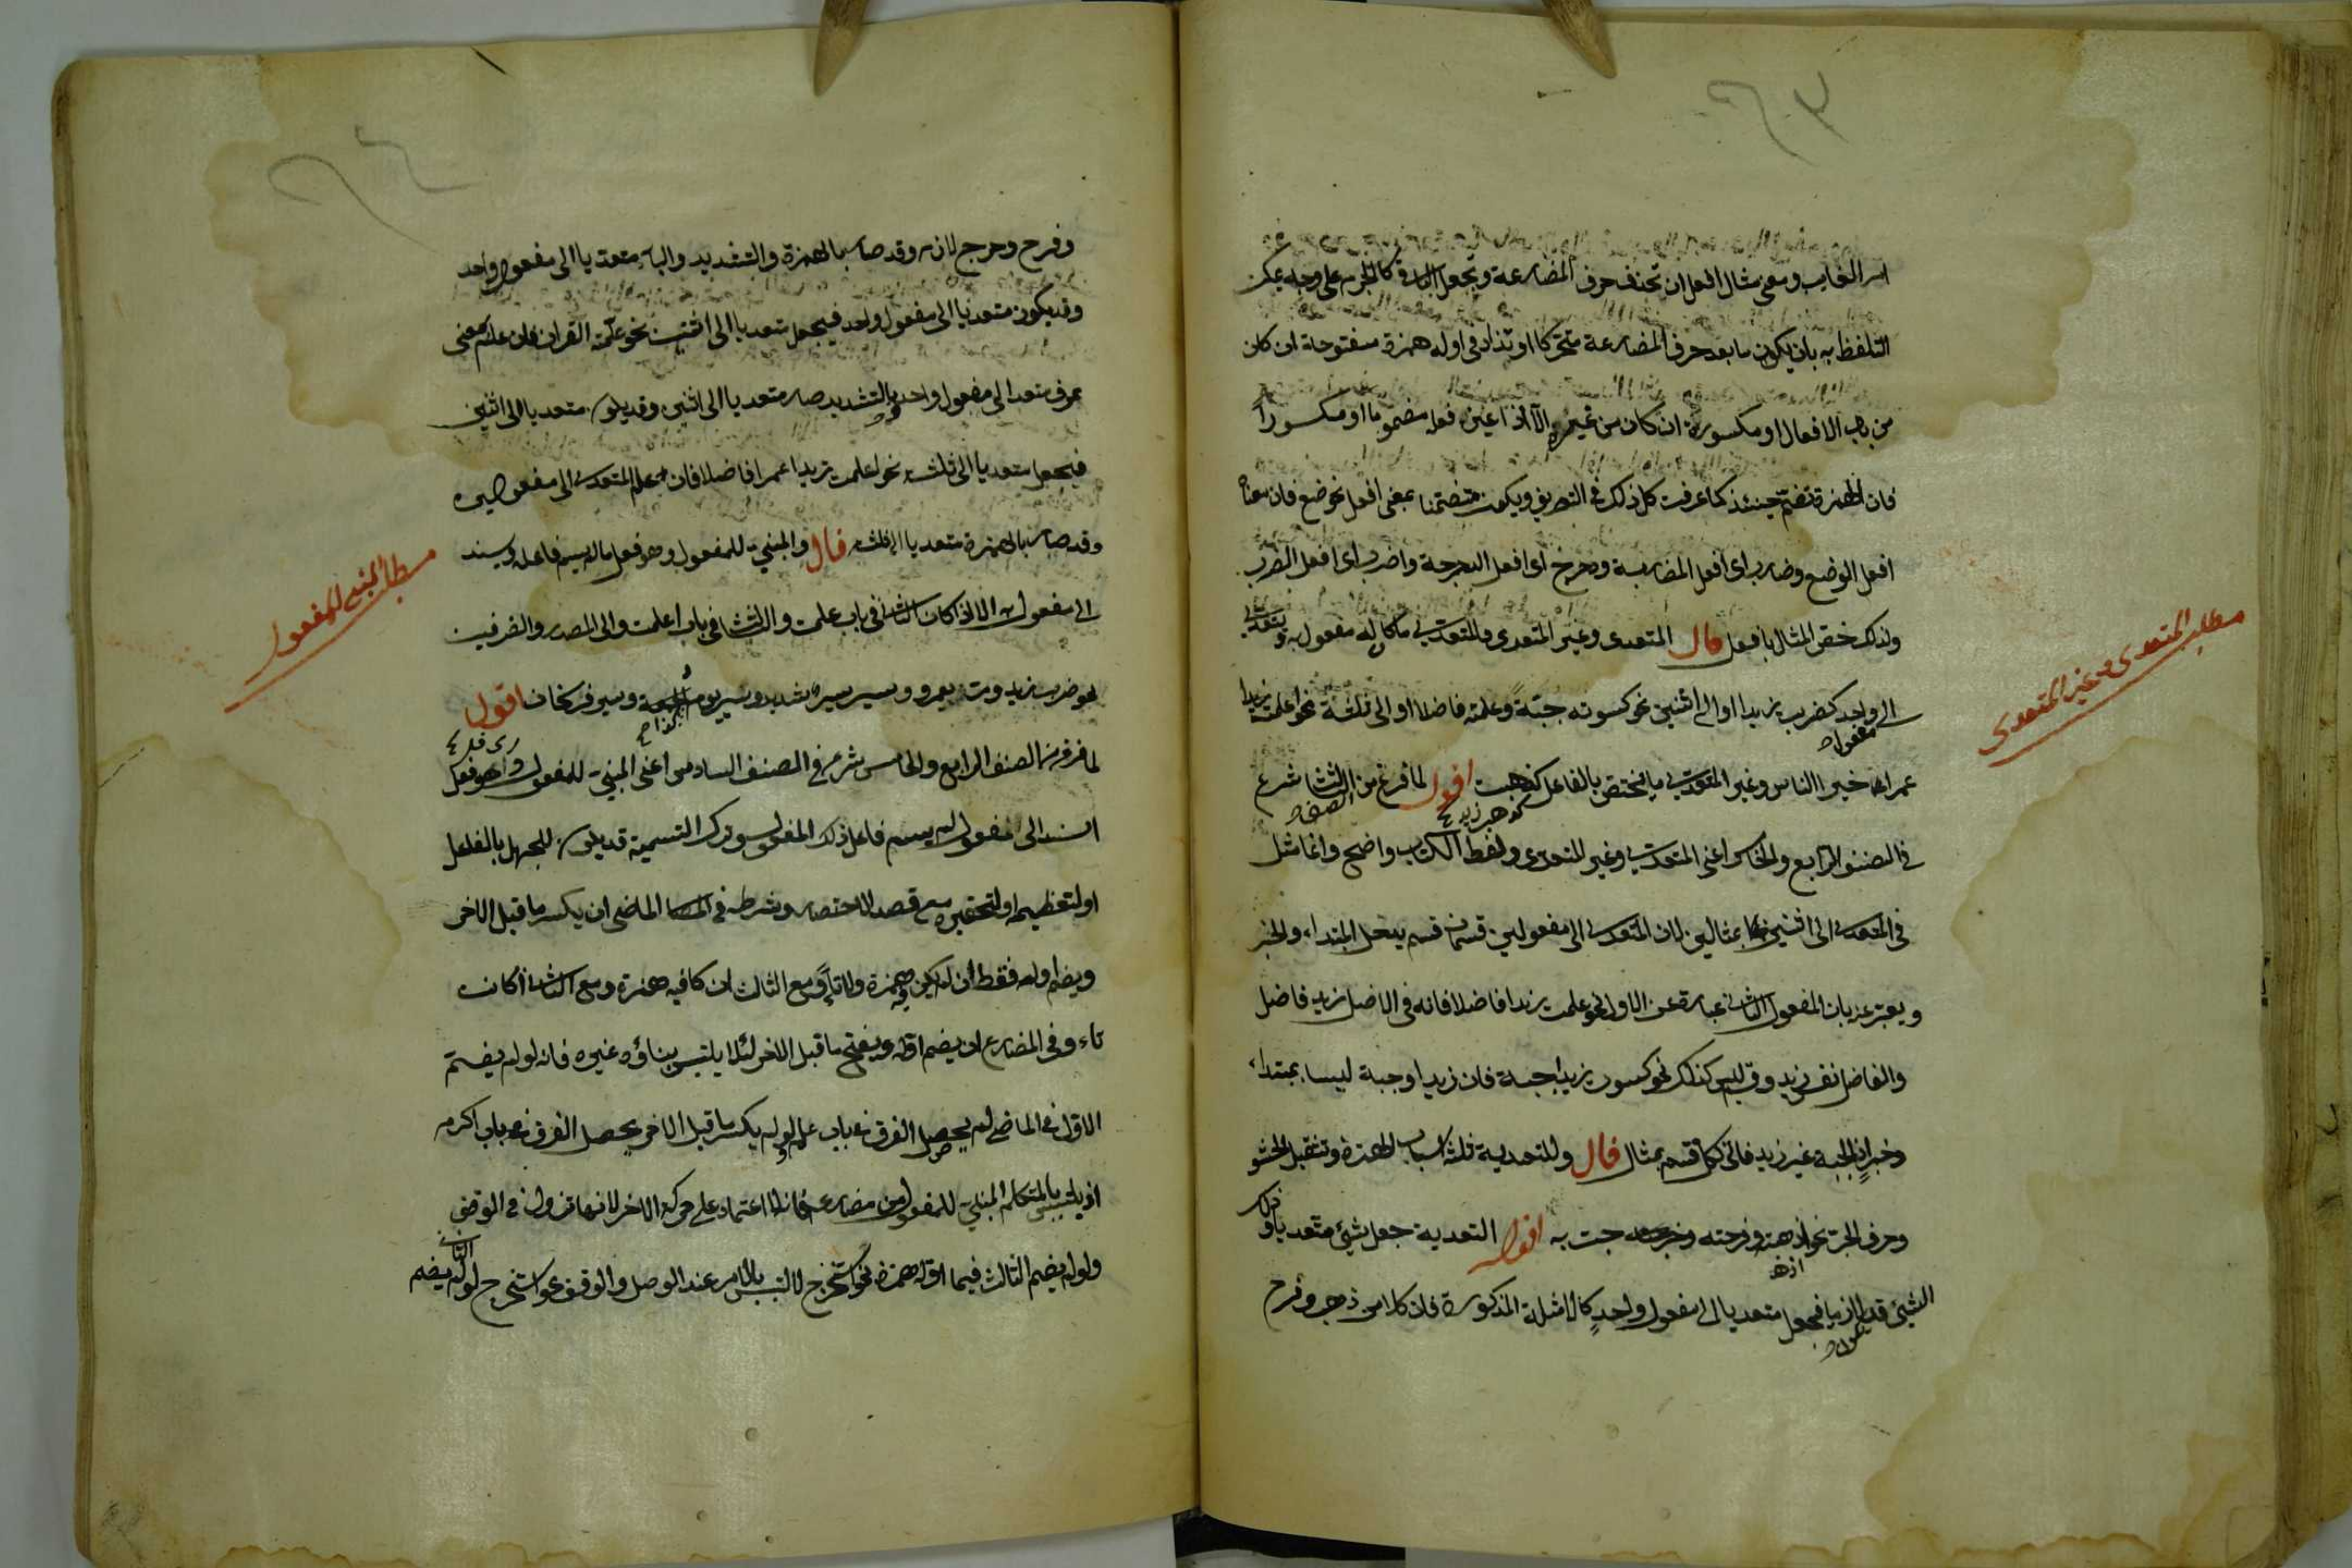 ٩٣
امر الغايب ومعنى مثال افعل ان تحذف حرف المضارعة وتجعل الباقى كالمجزوم على وجه يمكن
التلفظ به بان يكون ما بعد حرف المضارعة متحركا او تزاد فى اوله همزة مفتوحة ان كان
من باب الافعال او مكسورة ان كان من غيره الا اذا عين فعله مضموما او مكسورا
فان الهمزة تضم حينئذ كما عرفت كل ذلك فى التصريف ويكون متضمنا بمعنى افعل نحو ضع فان معناه
افعل الوضع وضارب اى افعل المضاربة ودحرج اى افعل الدحرجة واضرب اى افعل الضرب
ولذلك خص المثال بافعل قال المتعدى وغير المتعدى فالمتعدى ما كان له مفعول به ويتعدى
الى واحد كضربت زيدا او الى اثنين نحو كسوته جبة وعلمته فاضلا او الى ثلثة نحو اعلمت زيدا
عمرا خير الناس وغير المتعدى ما يختص بالفاعل كذهبت اقول لما فرغ من الثالث شرع
فى الصنف الرابع والخامس اعنى المتعدى وغير المتعدى ولفظ الكتاب واضح وانما مثل
فى المتعدى الى اثنين بمثالين لان المتعدى الى مفعولين قسمان قسم يدخل المبتداء والخبر
ويعبر عنه بان المفعول الثانى عبارة عن الاول نحو علمت زيدا فاضلا فانه فى الاصل زيد فاضل
والفاضل نفس زيد وقسم ليس كذلك نحو كسوت زيدا جبة فان زيدا وجبة ليسا بمبتداء
وخبر اذ الجبة غير زيد فاتى لكل قسم بمثال قال وللتعدية ثلثة اسباب الهمزة وتثقيل الحشو
وحرف الجر نحو اذهبته وفرحته وخرجت به اقول التعدية جعل شيئ متعديا وذلك
الشيئ قد يكون لازما فجعل متعديا الى مفعول واحد كالامثلة المذكورة فان كلا من ذهب وفرح
مطلب المتعدى وغير المتعدى
٩٤
وفرح وخرج لازم وقد صار بالهمزة والتشديد والباء متعديا الى مفعول واحد
وقد يكون متعديا الى مفعول واحد فيجعل متعديا الى اثنين نحو علمته القران فان علم بمعنى
عرف متعد الى مفعول واحد وبالتشديد صار متعديا الى اثنين وقد يكون متعديا الى اثنين
فيجعل متعديا الى ثلثة نحو اعلمت زيدا عمرا فاضلا فان علم المتعدى الى مفعولين
وقد صار بالهمزة متعديا الى ثلثة قال والمبنى للمفعول وهو فعل ما لم يسم فاعله ويسند
الى مفعول به الا اذا كان الثانى فى باب علمت والثالث فى باب اعلمت والى المصدر والظرفين
نحو ضرب زيد ومر بعمرو وسير سير شديد وسير يوم الجمعة وسير فرسخان اقول
لما فرغ من الصنف الرابع والخامس شرع فى الصنف السادس اعنى المبنى للمفعول وهو فعل
اسند الى مفعول لم يسم فاعل ذلك المفعول وترك التسمية قد يكون للجهل بالفاعل
او لتعظيمه او لتحقيره مع قصد الاختصار وشرطه فى الماضى ان يكسر ما قبل الاخر
ويضم اوله فقط ان لم يكن فيه همزة ولا تاء ومع الثالث ان كا فيه همزة ومع الثانى ان كانت
تاء وفى المضارع ان يضم اوله ويفتح ما قبل الاخر لئلا يلتبس بناؤه غيره فانه لو لم يضم
الاول فى الماضى لم يحصل الفرق عن باب علم ولو لم يكسر ما قبل الاخر لم يحصل الفرق عن باب اكرم
اذ يلتبس بالمتكلم المبنى للمفعول من مضارعه فانه لا اعتماد على حركة الاخر لانها تزول فى الوقف
ولو لم يضم الثالث فيما اوله همزة نحو استخرج لالتبس بالامر عند الوصل والوقف نحو استخرج ولو لم يضم الثانى
مطلب المبنى للمفعول